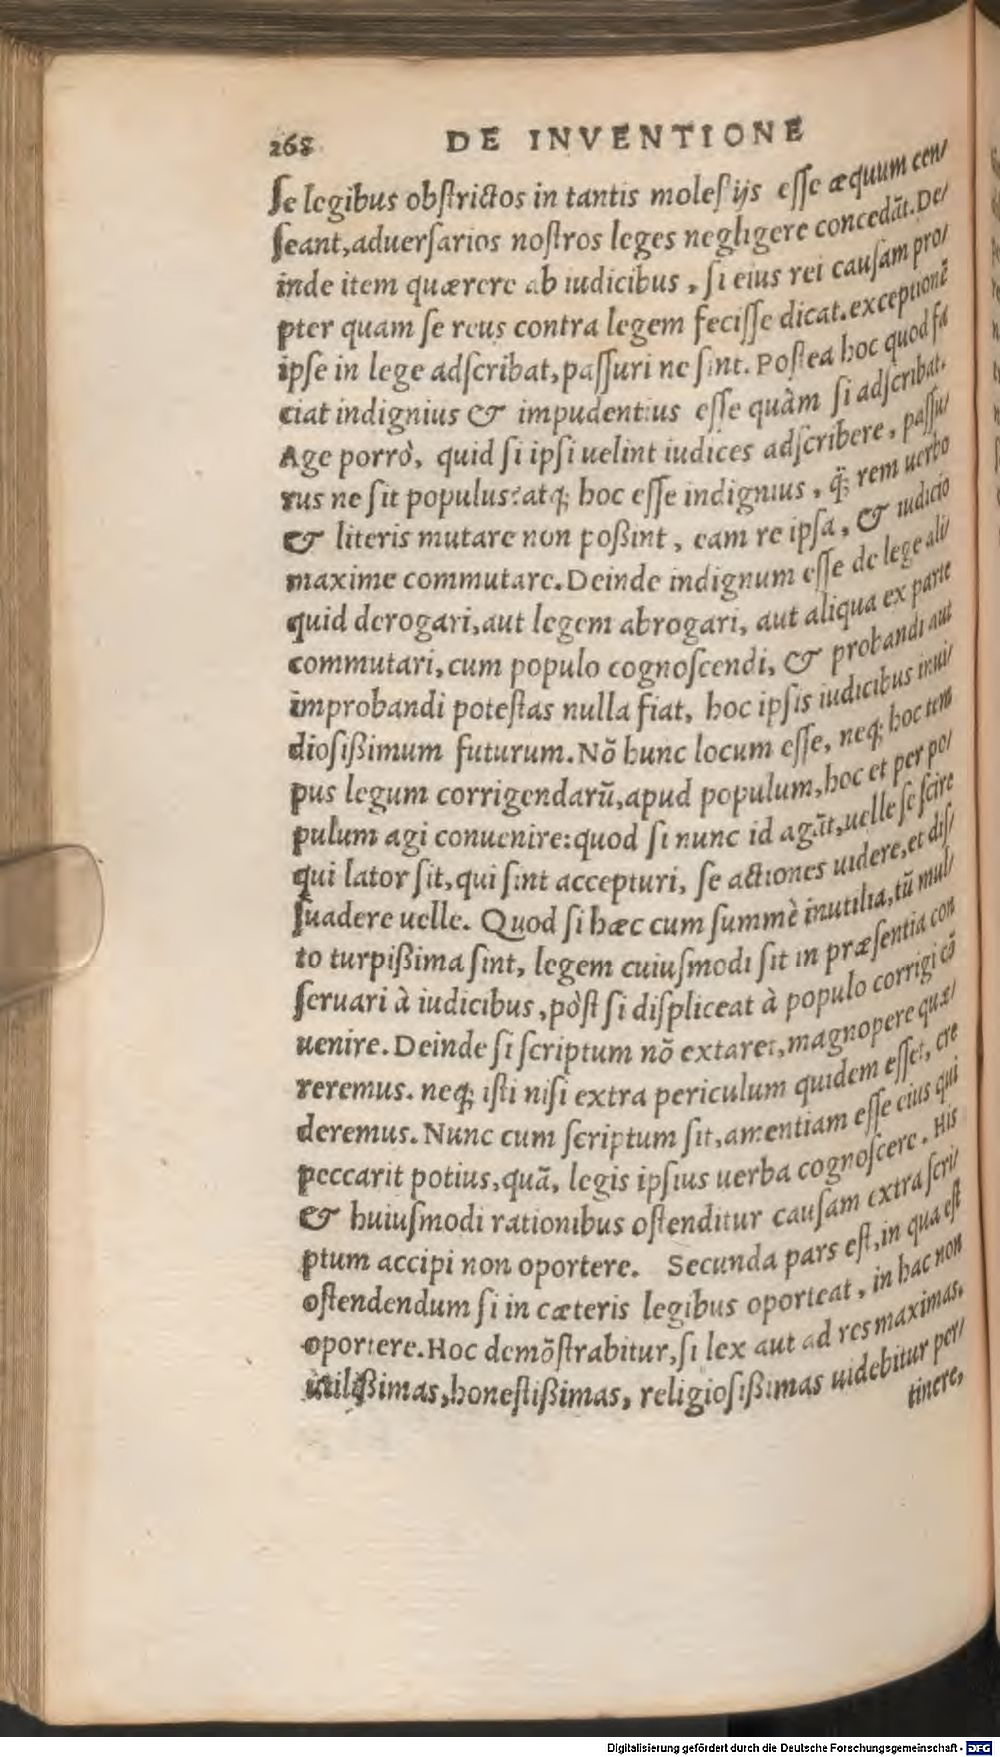 268 DE INVENTIONE
ſe legibus obſtrictos in tantis moleſtijs eſſe æquum cen/
ſeant, aduerſarios noſtros leges negligere concedāt. De/
inde item quærere ab iudicibus, ſi eius rei cauſam pro/
pter quam ſe reus contra legem feciſſe dicat. exceptionē
ipſe in lege adſcribat, paſſuri ne ſint. Poſtea hoc quod fa
ciat indignius & impudentius eſſe quàm ſi adſcribat.
Age porrò, quid ſi ipſi uelint iudices adſcribere, paſſu/
rus ne ſit populus? atq; hoc eſſe indignius, q̈; rem uerbo
& literis mutare non poßint, eam re ipſa, & iudicio
maxime commutare. Deinde indignum eſſe de lege ali/
quid derogari, aut legem abrogari, aut aliqua ex parte
commutari, cum populo cognoſcendi, & probandi aut
improbandi poteſtas nulla fiat, hoc ipſis iudicibus inui/
dioſißimum futurum. Nō hunc locum eſſe, neq; hoc tem
pus legum corrigendarū, apud populum, hoc et per po/
pulum agi conuenire: quod ſi nunc id agāt, uelle ſe ſcire
qui lator ſit, qui ſint accepturi, ſe actiones uidere, et diſ/
ſuadere uelle. Quod ſi hæc cum ſummè inutilia, tū mul/
to turpißima ſint, legem cuiuſmodi ſit in præſentia con
ſeruari à iudicibus, pòſt ſi diſpliceat à populo corrigi cō
uenire. Deinde ſi ſcriptum nō extaret, magnopere quæ/
reremus. neq; iſti niſi extra periculum quidem eſſet, cre
deremus. Nunc cum ſcriptum ſit, amentiam eſſe eius qui
peccarit potius, quā, legis ipſius uerba cognoſcere. His
& huiuſmodi rationibus oſtenditur cauſam extra ſcri/
ptum accipi non oportere. Secunda pars eſt, in qua eſt
oſtendendum ſi in cæteris legibus oporteat, in hac non
oportere. Hoc demōſtrabitur, ſi lex aut ad res maximas,
utilißimas, honeſtißimas, religioſißimas uidebitur per/
tinere,
Digitalisierung gefördert durch die Deutsche Forschungsgemeinschaft - DFG